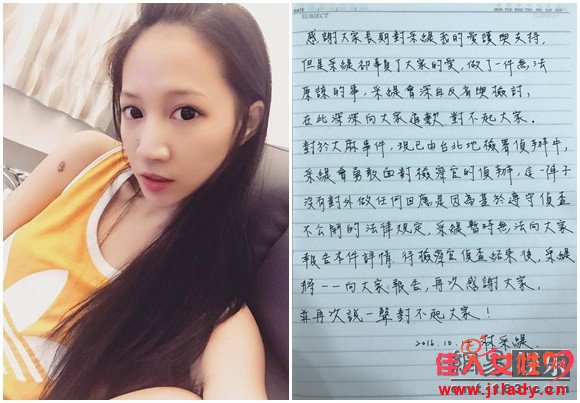 DATE
SUBJECT
感謝大家長期對采緹我的愛護與支持,
但是采緹卻辜負了大家的愛,做了一件無法
原諒的事,采緹會深自反省與檢討,
在此深深向大家道歉,對不起大家。
對於大麻事件,現已由台北地檢署偵辦中,
采緹會勇敢面對檢察官的偵辦,這一陣子
沒有對外做任何回應是因為基於遵守偵查
不公開的法律規定,采緹暫時無法向大家
報告本件詳情,待檢察官偵查結束後,采緹
將一一向大家報告,再次感謝大家,
並再次說一聲對不起大家!
2016.10. 林采緹
佳人女性
www.jrlady.cn